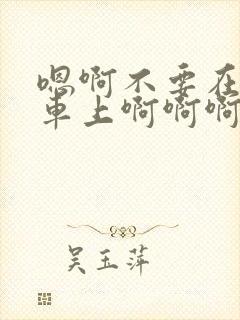 嗯啊不要在
車上啊啊啊
吴玉萍